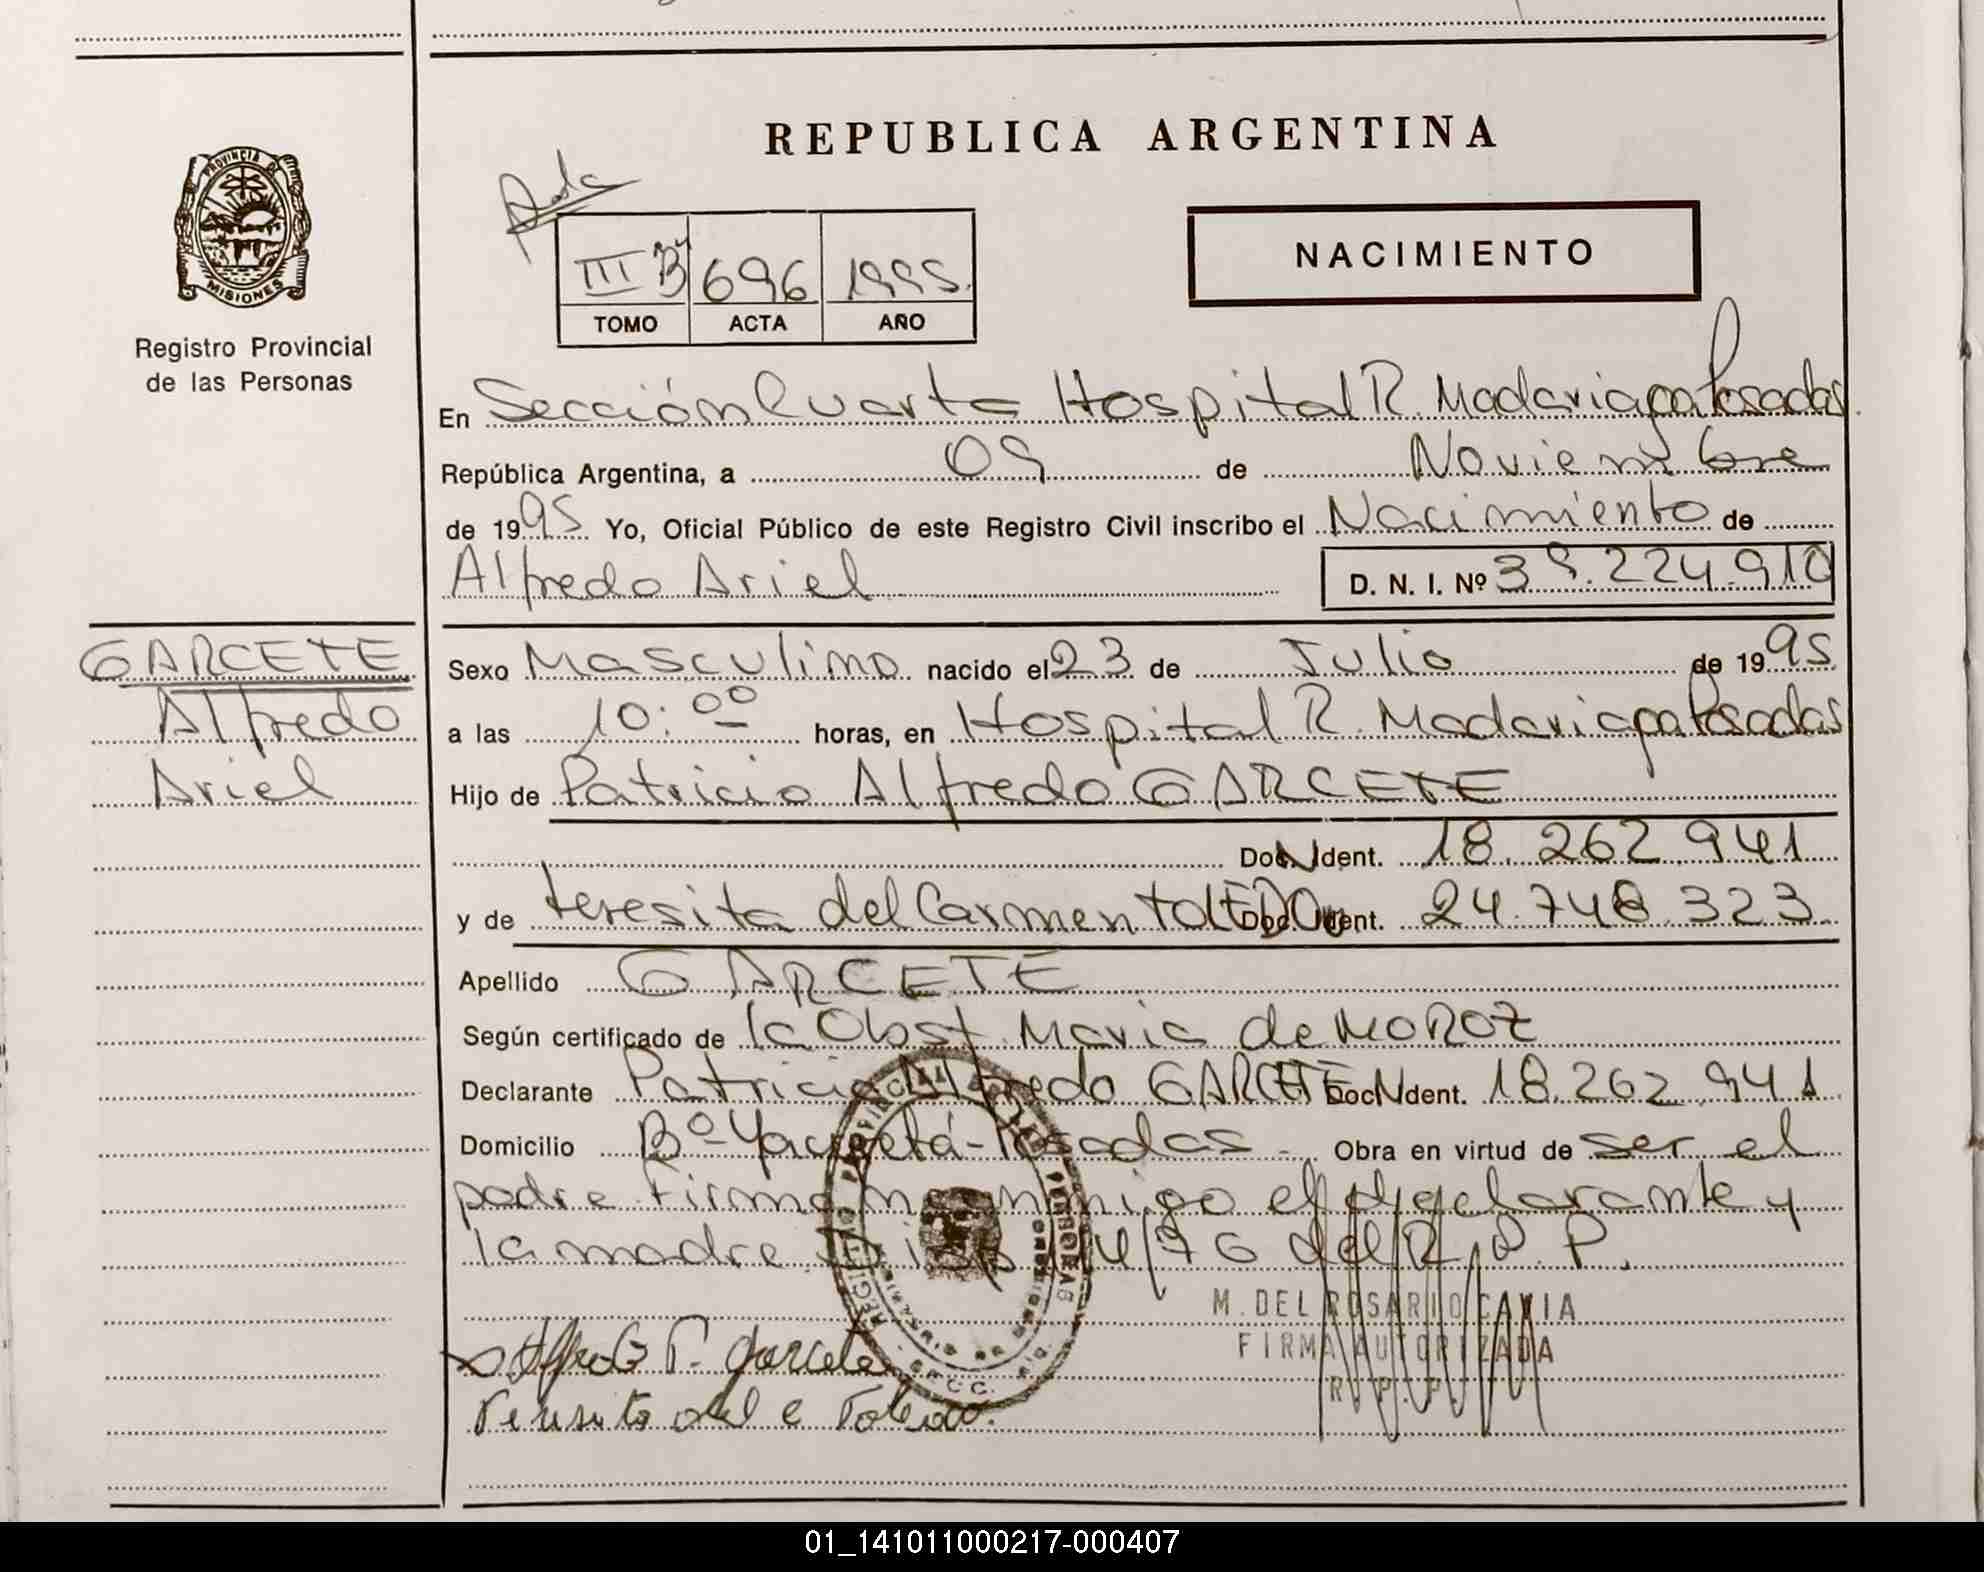 REPUBLICA ARGENTINA
PROVINCIA DE MISIONES
Registro Provincial
de las Personas
III B 696 1995.
TOMO ACTA AÑO
NACIMIENTO
En Sección Cuarta Hospital R. Madariaga Posadas
República Argentina, a 09 de Noviembre
de 1995 Yo, Oficial Público de este Registro Civil inscribo el Nacimiento de
Alfredo Ariel D. N. I. Nº 39.224.910
GARCETE
Alfredo
Ariel
Sexo Masculino nacido el 23 de Julio de 1995
a las 10:00 horas, en Hospital R. Madariaga Posadas
Hijo de Patricio Alfredo GARCETE
Doc. Ident. 18.262.941
y de teresita del Carmen TOLEDO Doc. Ident. 24.748.323
Apellido GARCETE
Según certificado de la Obst. Maria de MOROZ
Declarante Patricio Alfredo GARCETE Doc. Ident. 18.262.941
Domicilio Bº Yacyretá-Posadas. Obra en virtud de ser el
padre. Firman conmigo el declarante y
la madre. 14/76 del R. P. P.
M. DEL ROSARIO CAVIA
FIRMA AUTORIZADA
R. P. P.
Alfredo P. Garcete
Teresita del C Toledo.
01_141011000217-000407